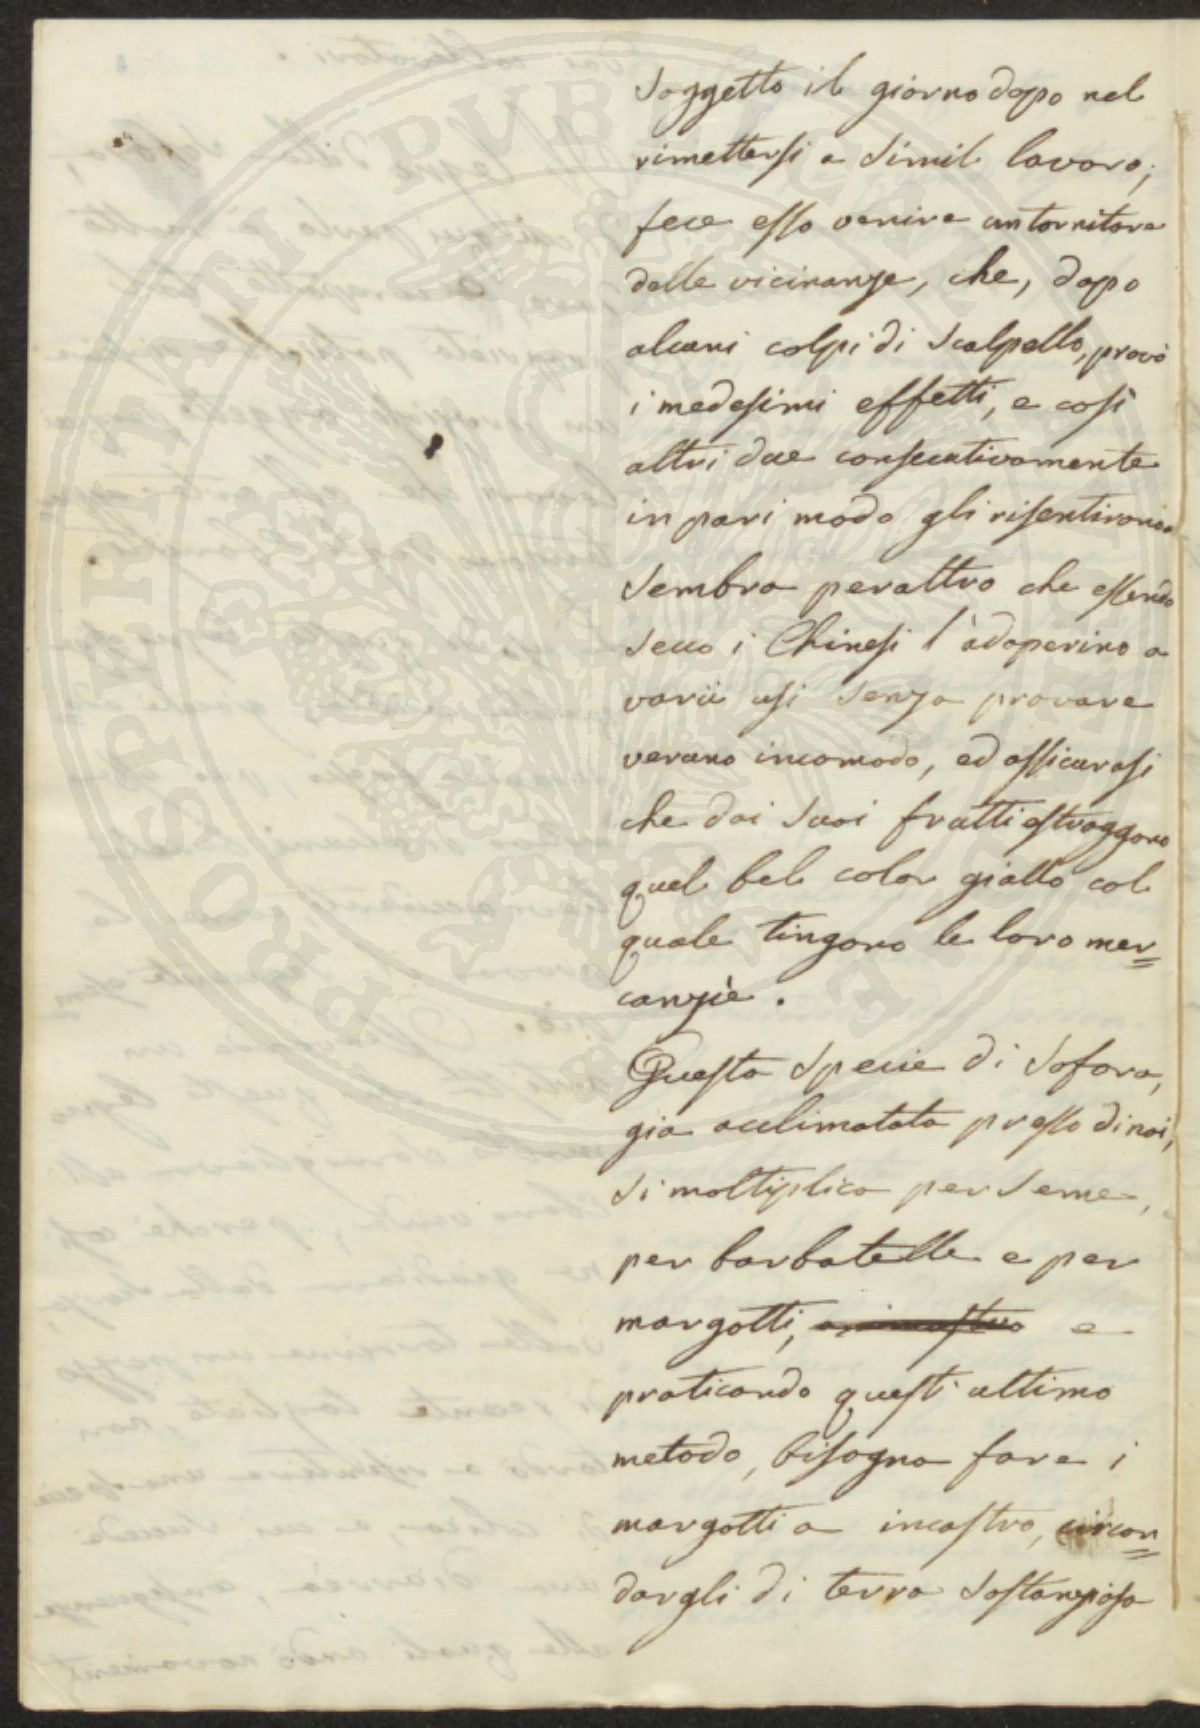 soggetto il giorno dopo nel
rimettersi a simil lavoro;
fece esso venire un tornitore
delle vicinanze, che, dopo
alcuni colpi di scalpello, provò
i medesimi effetti, e così
altri due consecutivamente
in pari modo gli risentirono
Sembra peraltro che essendo
secco i Chinesi l'adoperino a
varii usi senza provare
veruno incomodo, ed assicurasi
che dai suoi frutti estraggono
quel bel color giallo col
quale tingono le loro mer=
canzie.
Questa specie di Sofora,
gia acclimatata presso di noi,
si moltiplica per seme,
per barbatelle e per
margotti, e
praticando quest'ultimo
metodo, bisogna fare i
margotti a incastro, circon=
dargli di terra sostanziosa
PROSPERITATI PUBLICAE